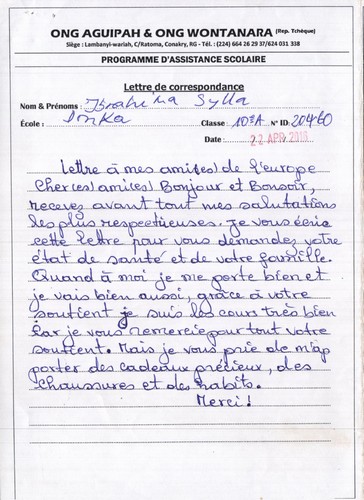 ONG AGUIPAH & ONG WONTANARA (Rep. Tchèque)
Siège : Lambanyi-wariah, C/Ratoma, Conakry, RG - Tél. : (224) 664 26 29 37/624 031 338
PROGRAMME D'ASSISTANCE SCOLAIRE
Lettre de correspondance
Nom & Prénoms : Ibrahima Sylla
École : Classe : 10èA N° ID: 20460
Date : 22 APR 2016
Lettre à mes ami(es) de l'europe
Cher(es) ami(es) Bonjour et Bonsoir,
recevez avant tout mes salutations
les plus respectieuses. Je vous écris
cette lettre pour vous demandez votre
état de santé et de votre famille.
Quand à moi je me porte bien et
je vais bien aussi, grâce à votre
soutient je suis les cours très bien
Car je vous remercie pour tout votre
soutient. Mais je vous prie de m'ap
porter des cadeaux précieux, des
chaussures et des habits.
Merci!